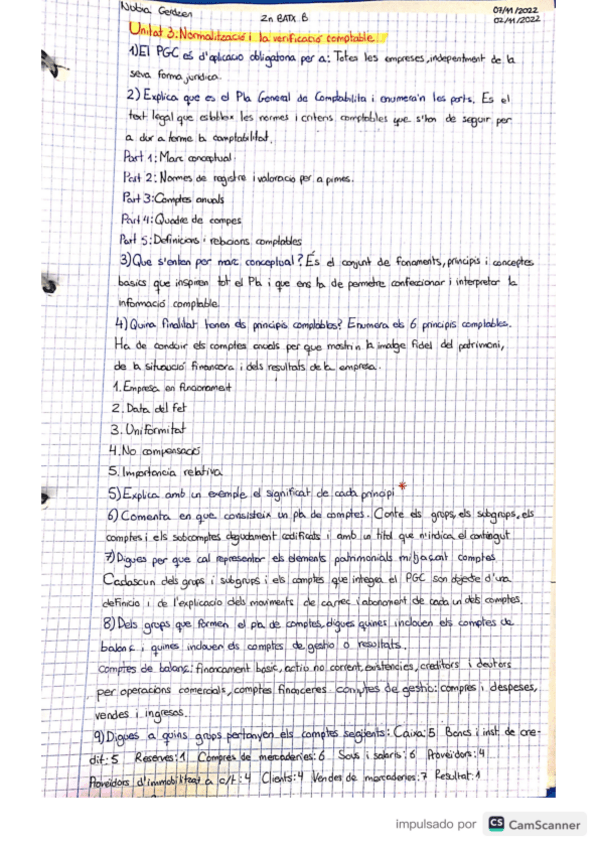 Nubia Cerdeen
2n BATX B
07/11/2022
02/11/2022
Unitat 3: Normalització i la verificació comptable
1) El PGC és d'aplicació obligatoria per a: Totes les empreses, independentment de la
seva forma jurídica.
2) Explica que es el Pla General de Comptabilita i enumera'n les parts. Es el
text legal que estableix les normes i criteris comptables que s'han de seguir per
a dur a terme la comptabilitat.
Part 1: Marc conceptual
Part 2: Normes de registre i valoració per a pimes.
Part 3: Comptes anuals
Part 4: Quadre de comptes
Part 5: Definicions i relacions comptables
3) Que s'enten per marc conceptual? És el conjunt de fonaments, principis i conceptes
basics que inspiren tot el Pla i que ens ha de permetre confeccionar i interpretar la
informació comptable.
4) Quina finalitat tenen els principis comptables? Enumera els 6 principis comptables.
Ha de conduir els comptes anuals per que mostrin la imatge fidel del patrimoni,
de la situació financera i dels resultats de la empresa.
1. Empresa en funcionament
2. Data del fet
3. Uniformitat
4. No compensació
5. Importancia relativa
5) Explica amb un exemple el significat de cada principi *
6) Comenta en que consisteix un pla de comptes. Conte els grups, els subgrups, els
comptes i els subcomptes degudament codificats i amb un titol que n'indica el contingut
7) Digues per que cal representar els elements patrimonials mitjaçant comptes
Cadascun dels grups i subgrups i els comptes que integra el PGC son objecte d'una
definicio i de l'explicacio dels moviments de carrec i abonament de cada un dels comptes.
8) Dels grups que formen el pla de comptes, digues quines inclouen els comptes de
balanç i quines inclouen els comptes de gestio o resultats.
Comptes de balanç: financament basic, actiu no corrent, existencies, creditors i deutors
per operacions comercials, comptes financeres comptes de gestio: compres i despeses,
vendes i ingresos.
9) Digues a quins grups pertanyen els comptes següents: Caixa: 5 Bancs i inst. de cre-
dit: 5 Reserves: 1 Compres de mercaderies: 6 Sous i salaris: 6 Proveidors: 4
Proveidors d'immobilitzat a c/t: 4 Clients: 4 Vendes de mercaderies: 7 Resultat: 1
impulsado por CS CamScanner